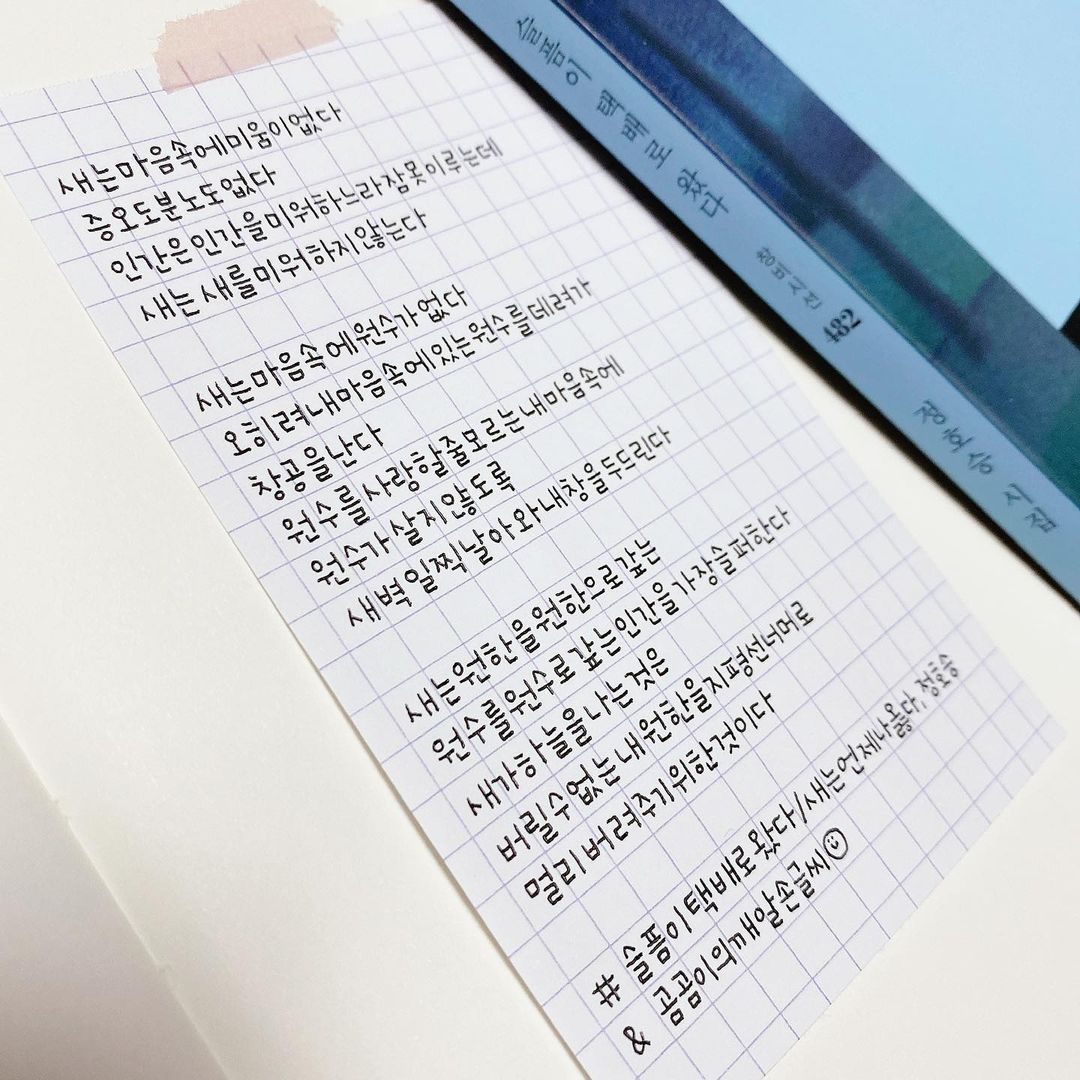 새는 마음속에 미움이 없다
증오도 분노도 없다
인간은 인간을 미워하느라 잠 못 이루는데
새는 새를 미워하지 않는다
새는 마음속에 원수가 없다
오히려 내 마음속에 있는 원수를 데려가
창공을 난다
원수를 사랑할 줄 모르는 내 마음속에
원수가 살지 않도록
새벽 일찍 날아와 내 창을 두드린다
새는 원한을 원한으로 갚는
원수를 원수로 갚는 인간을 가장 슬퍼한다
새가 하늘을 나는 것은
버릴 수 없는 내 원한을 지평선 너머로
멀리 버려주기 위한 것이다
# 슬픔이 택배로 왔다/새는 언제나 옳다, 정호승
& 곰곰이의 깨알 손글씨☺
슬픔이 택배로 왔다
창비시선 482
정호승 시집